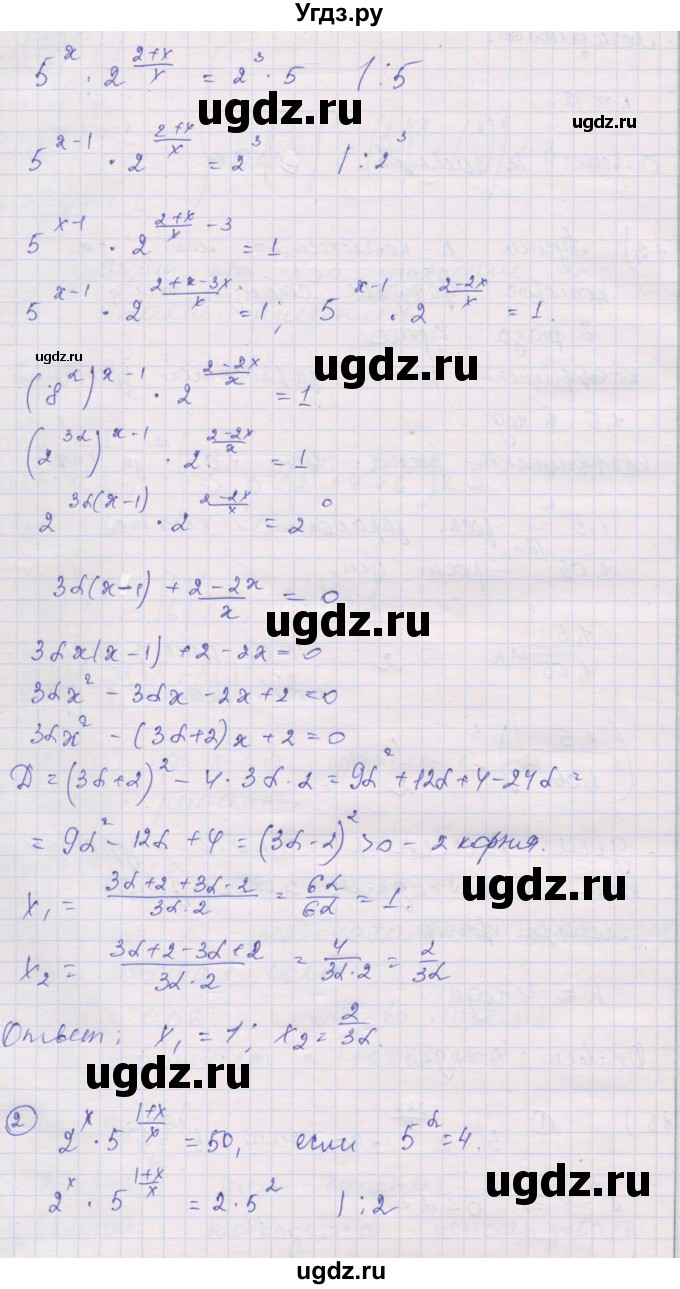 Угдз.ру
5^x · 2^((2+x)/x) = 2^3 · 5 | : 5
ugdz.com
ugdz.com
5^(x-1) · 2^((2+x)/x) = 2^3 | : 2^3
5^(x-1) · 2^((2+x)/x - 3) = 1
ugdz.com
5^(x-1) · 2^((2+x-3x)/x) = 1; 5^(x-1) · 2^((2-2x)/x) = 1.
ugdz.com
ugdz.com
(8^α)^(x-1) · 2^((2-2x)/x) = 1
(2^(3α))^(x-1) · 2^((2-2x)/x) = 1
2^(3α(x-1)) · 2^((2-2x)/x) = 2^0
ugdz.com
3α(x-1) + (2-2x)/x = 0
ugdz.com
3αx(x-1) + 2 - 2x = 0
3αx² - 3αx - 2x + 2 = 0
3αx² - (3α+2)x + 2 = 0
D = (3α+2)² - 4 · 3α · 2 = 9α² + 12α + 4 - 24α =
ugdz.com
= 9α² - 12α + 4 = (3α-2)² > 0 - 2 корня.
x₁ = (3α+2+3α-2)/(3α·2) = 6α/6α = 1.
ugdz.com
x₂ = (3α+2-3α+2)/(3α·2) = 4/(3α·2) = 2/3α
Ответ: x₁ = 1; x₂ = 2/3α.
ugdz.com
② 2^x · 5^((1+x)/x) = 50, если 5^α = 4.
ugdz.com
2^x · 5^((1+x)/x) = 2 · 5^2 | : 2
ugdz.com
ugdz.com